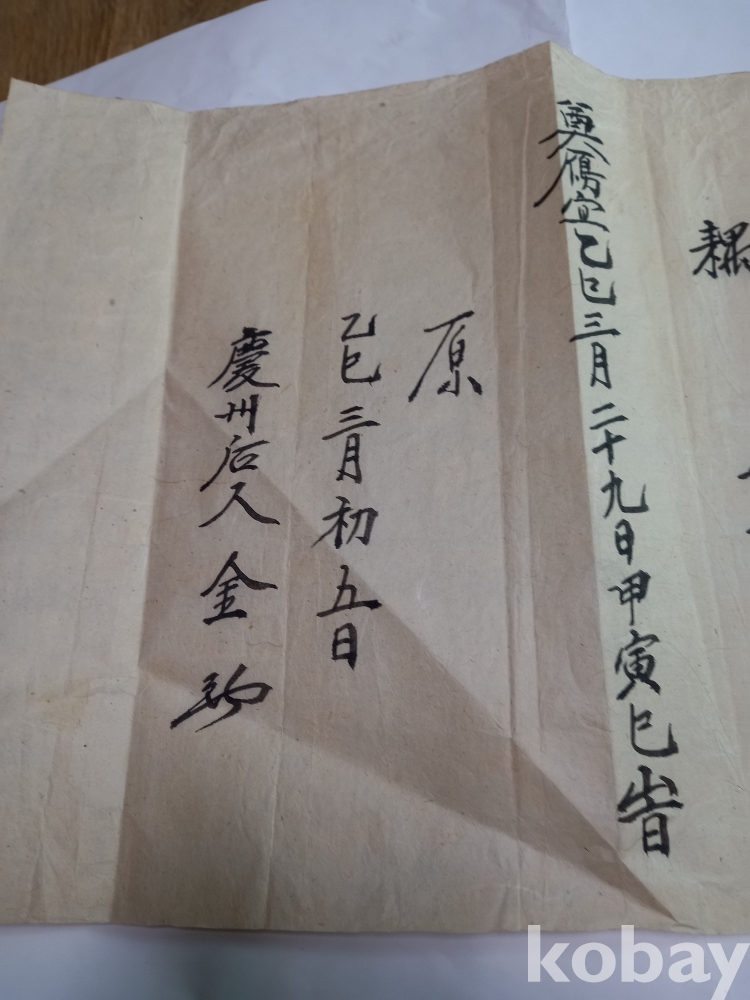 耦
奠鴈宜乙巳三月二十九日甲寅巳時
原
乙巳三月初五日
慶州后人金
kobay